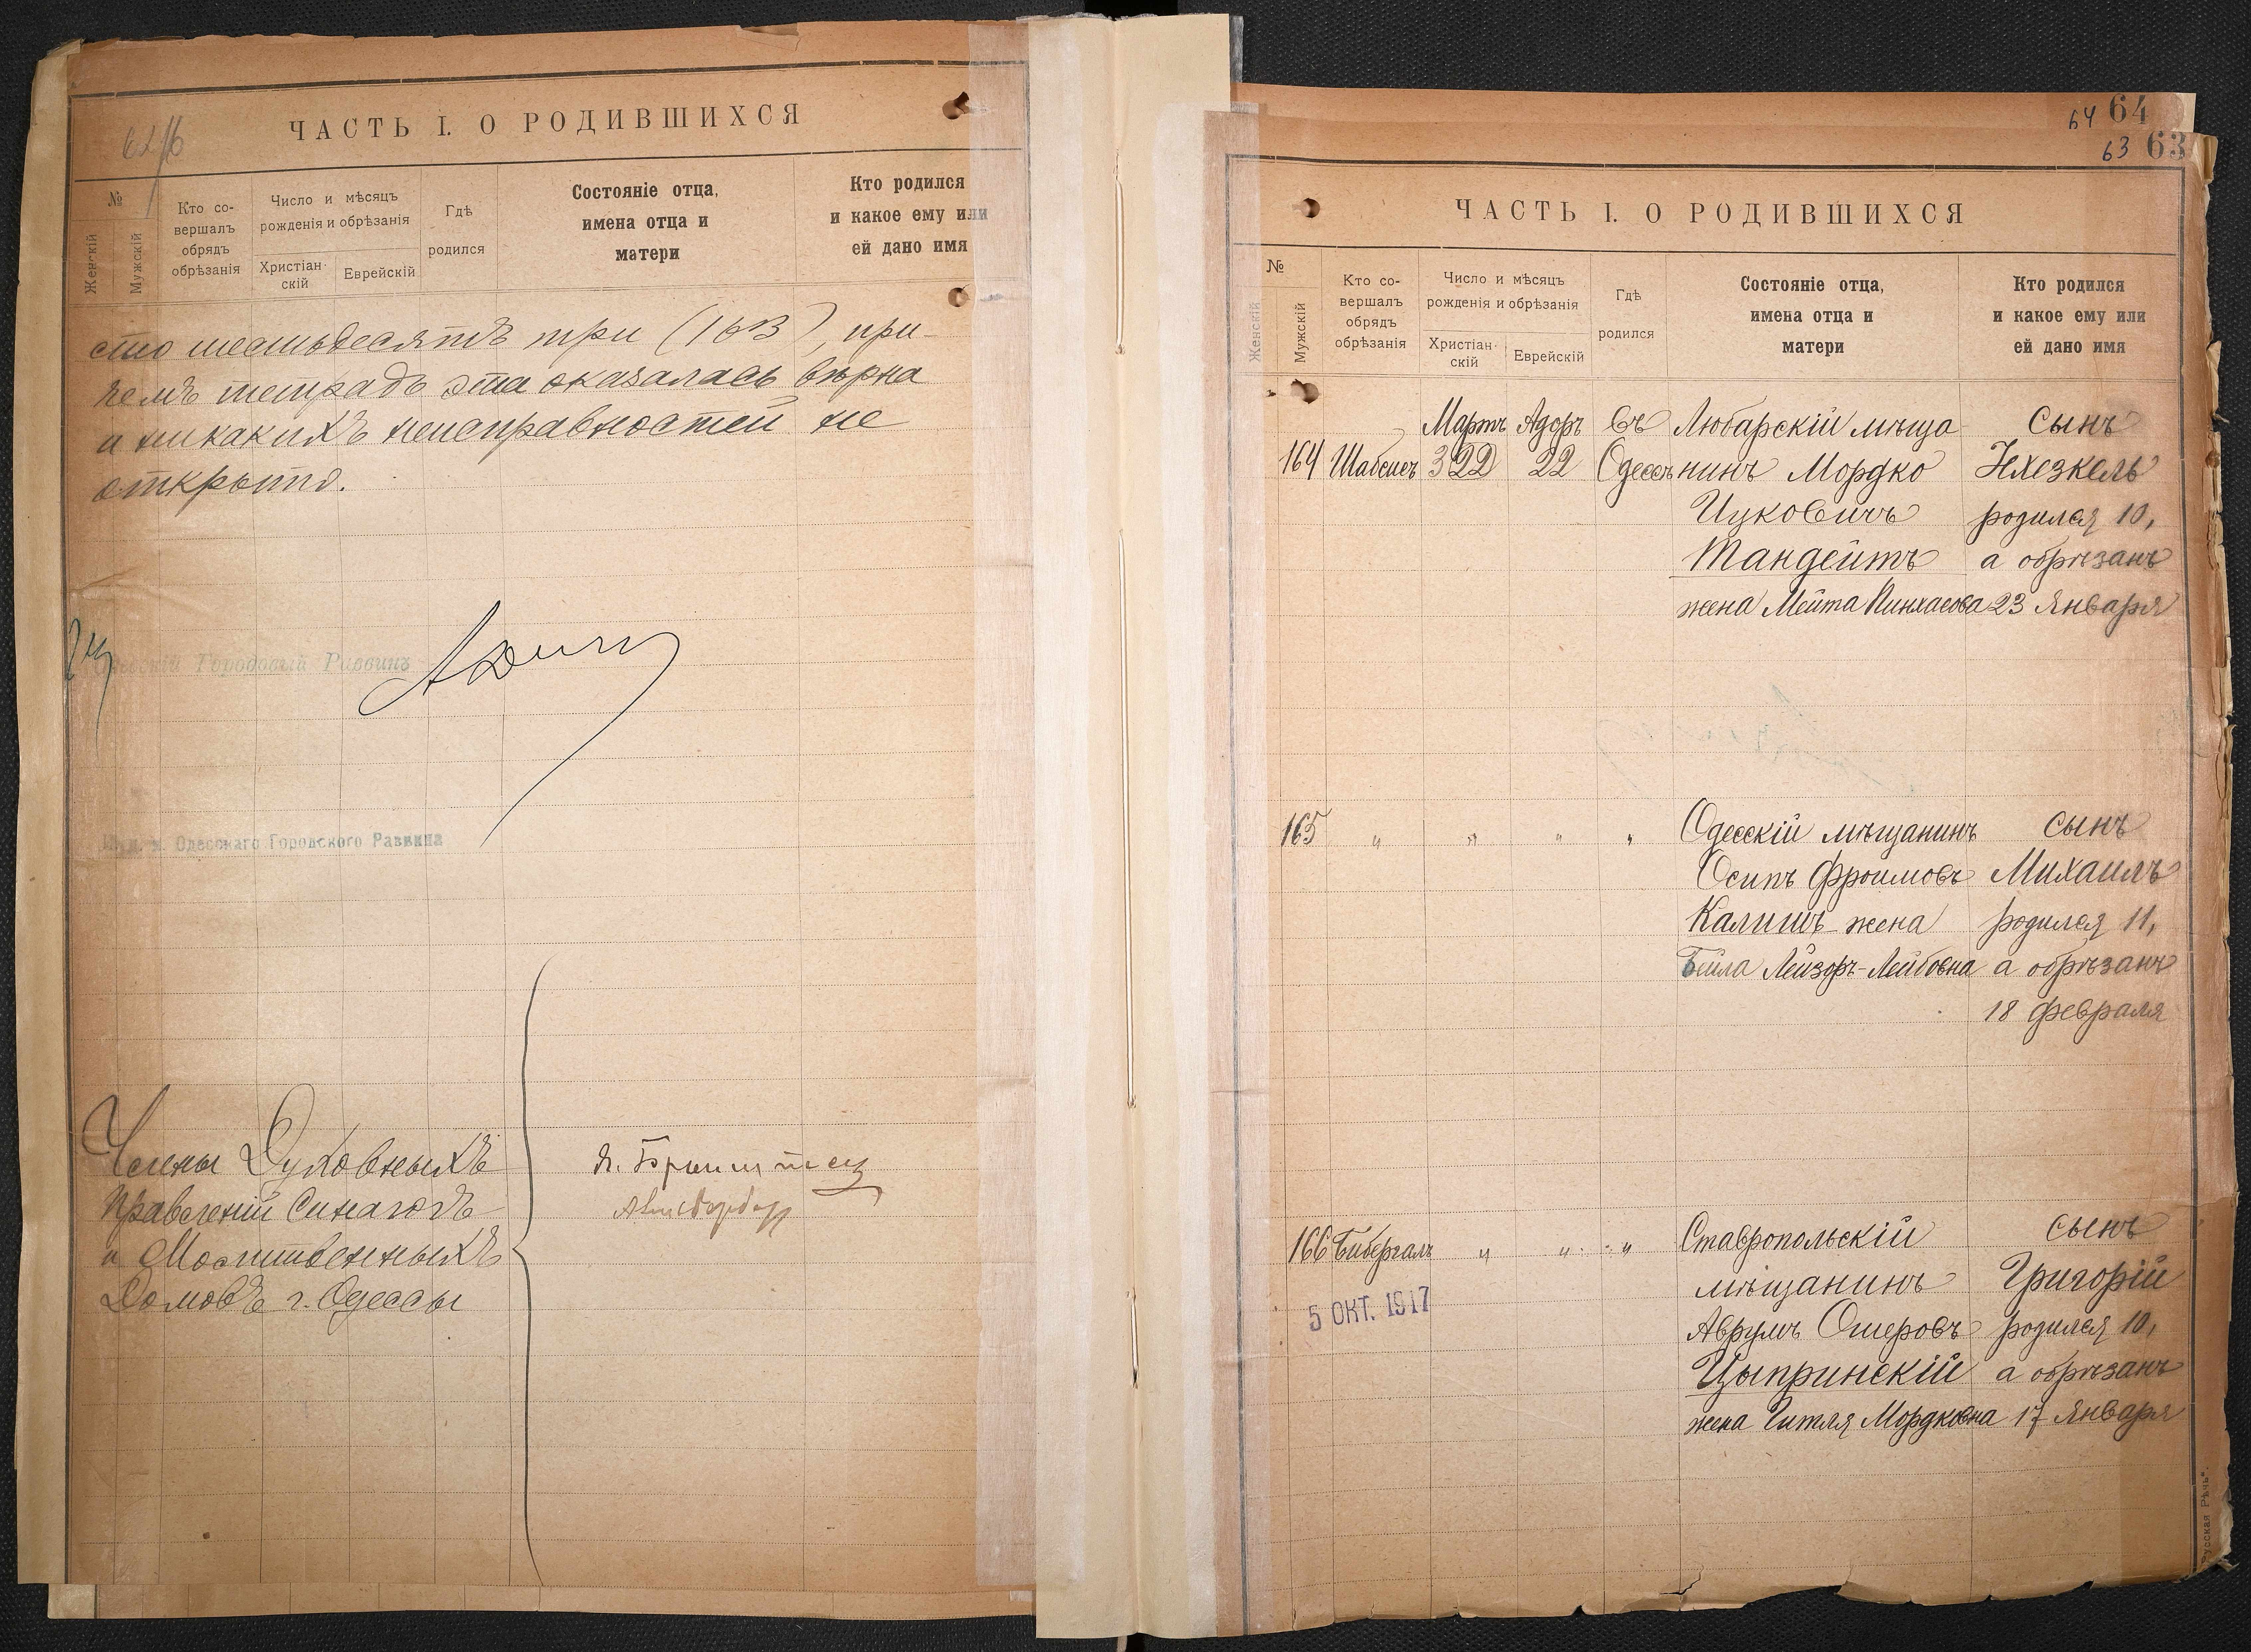 ЧАСТЬ I. О РОДИВШИХСЯ
№
Женскій
Мужскій
Кто со-
вершалъ
обрядъ
обрѣзанія
Число и мѣсяцъ
рожденія и обрѣзанія
Христіан-
скій
Еврейскій
Гдѣ
родился
Состояніе отца,
имена отца и
матери
Кто родился
и какое ему или
ей дано имя
сто шестьдесятъ три (163), при-
чемъ тетрадь эта оказалась вѣрна
и никакихъ неисправностей не
открыто.
Городовый Раввинъ
Одесскаго Городского Раввина
Члены Духовныхъ
Правленій Синагогъ
и Молитвенныхъ
Домовъ г. Одессы
64 64
63 63
ЧАСТЬ I. О РОДИВШИХСЯ
№
Женскій
Мужскій
Кто со-
вершалъ
обрядъ
обрѣзанія
Число и мѣсяцъ
рожденія и обрѣзанія
Христіан-
скій
Еврейскій
Гдѣ
родился
Состояніе отца,
имена отца и
матери
Кто родился
и какое ему или
ей дано имя
Мартъ Адоръ Въ Любарскій мѣща сынъ
164 Шабсисъ 22 Одессѣ нинъ Мордко Ихезкель
Ицковичъ родился 10,
Тандейтъ а обрѣзанъ
жена Мейта Пинхасова 23 Января
165 " " " " Одесскій мѣщанинъ сынъ
Осипъ Фроимовъ Михаилъ
Калишъ жена родился 11,
Бейла Лейзоръ-Лейбовна а обрѣзанъ
18 февраля
166 Бибергалъ " " " Ставропольскій сынъ
мѣщанинъ Григорій
5 ОКТ. 1917
Аврумъ Ошеровъ родился 10,
Цыпринскій а обрѣзанъ
жена Гитля Мордковна 17 Января
Русская Рѣчь".